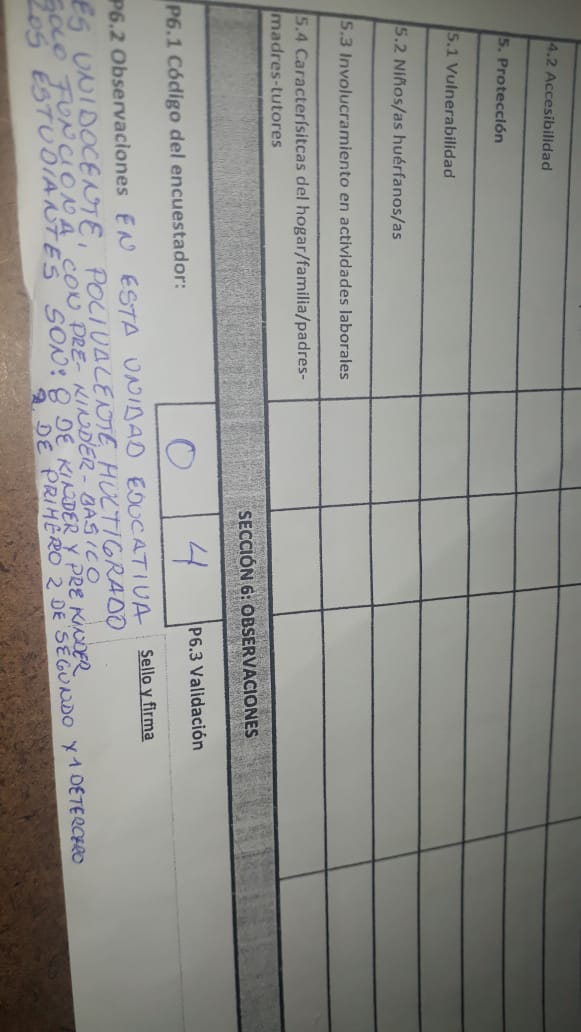 4.2 Accesibilidad
5. Protección
5.1 Vulnerabilidad
5.2 Niños/as huérfanos/as
5.3 Involucramiento en actividades laborales
5.4 Caracterísitcas del hogar/familia/padres-
madres-tutores
SECCIÓN 6: OBSERVACIONES
P6.1 Código del encuestador: 0 4 P6.3 Validación
Sello y firma
P6.2 Observaciones EN ESTA UNIDAD EDUCATIVA
ES UNIDOCENTE, POLIVALENTE MULTIGRADO
SOLO FUNCIONA CON PRE-KINDER-BASICO
LOS ESTUDIANTES SON: 8 DE KINDER Y PRE KINDER
2 DE PRIMERO 2 DE SEGUNDO Y 1 DE TERCERO